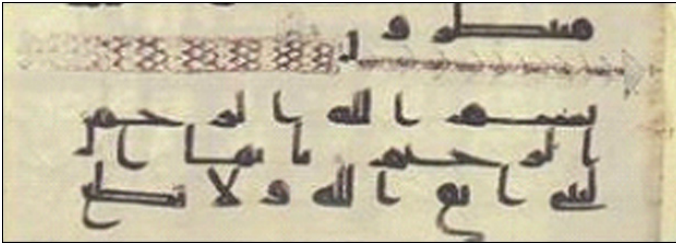 منتظرو
ن
بسم الله الرحمن
الرحيم يايها ا
لنبي اتق الله ولا تطع